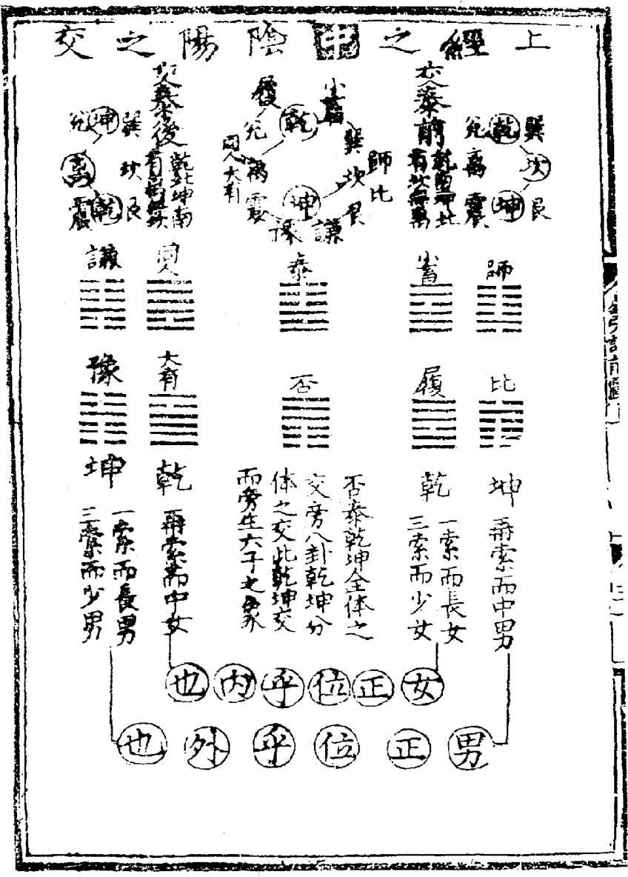 上經之中陰陽之交
交泰前
乾南坤北
有坎無離
乾 兌 離 震 坤 巽 坎 艮
小畜 履 乾 兌 離 震 坤 巽 坎 艮 師比 同人大有 謙 豫
交泰後
乾北坤南
有離無坎
坤 兌 離 震 乾 巽 坎 艮
師 小畜 泰 同人 謙
比 履 否 大有 豫
坤 再索而中男
乾 一索而長女
三索而少女
否泰乾坤全体之
交旁八卦乾坤分
体之交此乾坤交
而旁生六子之象
乾 再索而中女
坤 一索而長男
三索而少男
女正位乎內也
男正位乎外也